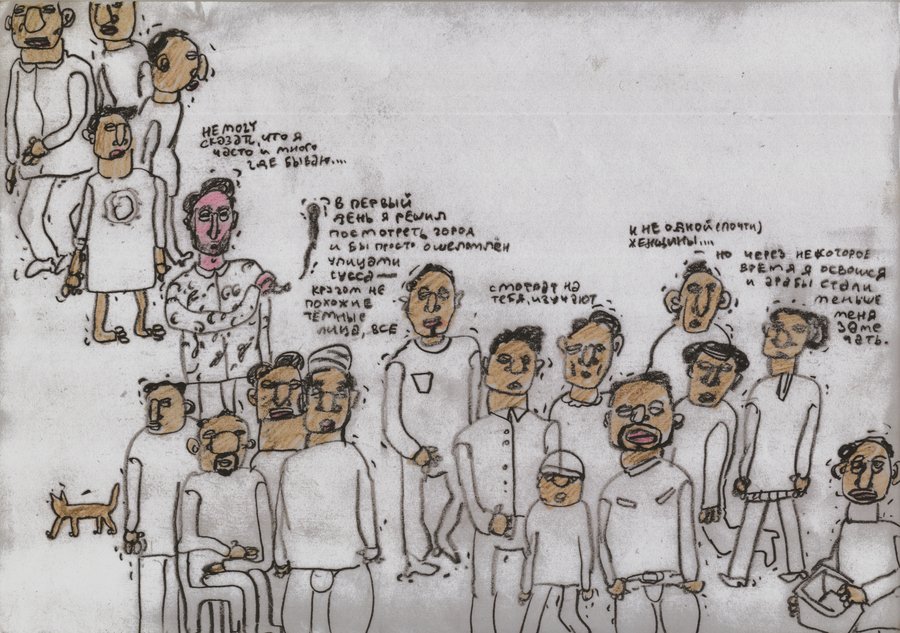 НЕ МОГУ
СКАЗАТЬ, ЧТО Я
ЧАСТО И МНОГО
ГДЕ БЫВАЮ....
В ПЕРВЫЙ
ДЕНЬ Я РЕШИЛ
ПОСМОТРЕТЬ ГОРОД
И БЫ ПРОСТО ОШЕЛОМЛЁН
УЛИЦАМИ
СУССА —
КРАЗОМ НЕ
ПОХОЖИЕ
ТЁМНЫЕ
ЛИЦА, ВСЕ
СМОТРЯТ НА
ТЕБЯ, ИЗУЧАЮТ
И НЕ ОДНОЙ (ПОЧТИ)
ЖЕНЩИНЫ....
НО ЧЕРЕЗ НЕКОТОРОЕ
ВРЕМЯ Я ОСВОИЛСЯ
И АРАБЫ СТАЛИ
МЕНЬШЕ
МЕНЯ
ЗАМЕ
ЧАТЬ.